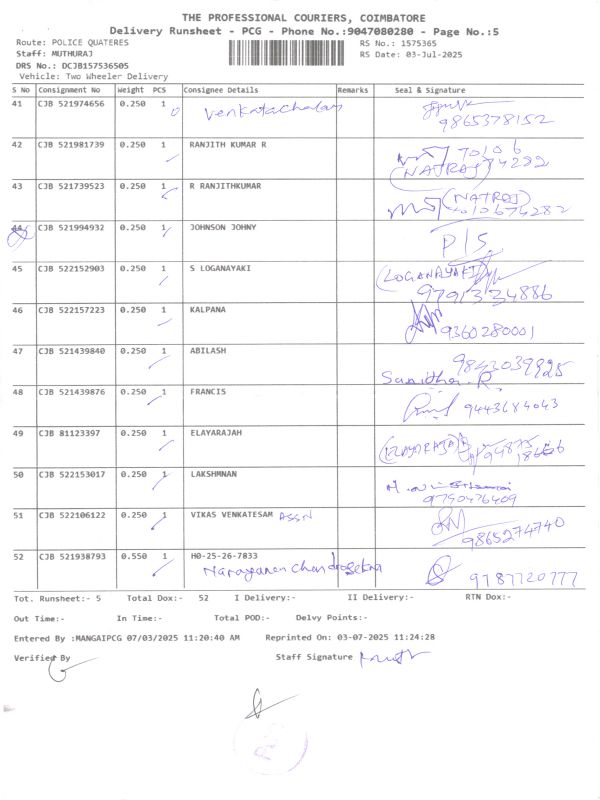 THE PROFESSIONAL COURIERS, COIMBATORE
Delivery Runsheet - PCG - Phone No.:9047080280 - Page No.:5
Route: POLICE QUATERES RS No.: 1575365
Staff: MUTHURAJ RS Date: 03-Jul-2025
DRS No.: DCJB157536505
Vehicle: Two Wheeler Delivery
S No Consignment No Weight PCS Consignee Details Remarks Seal & Signature
41 CJB 521974656 0.250 1 Venkatachalam
9865378152
42 CJB 521981739 0.250 1 RANJITH KUMAR R
(NATRAJ)
43 CJB 521739523 0.250 1 R RANJITHKUMAR (NATRAJ)
44 CJB 521994932 0.250 1 JOHNSON JOHNY
P/S
45 CJB 522152903 0.250 1 S LOGANAYAKI (LOGANAYAKI)
9791334886
46 CJB 522157223 0.250 1 KALPANA
9360280001
47 CJB 521439840 0.250 1 ABILASH 9843039925
Sunitha. R
48 CJB 521439876 0.250 1 FRANCIS
9443684043
49 CJB 81123397 0.250 1 ELAYARAJAH
(ELAYARAJA)
50 CJB 522153017 0.250 1 LAKSHMNAN
9790476409
51 CJB 522106122 0.250 1 VIKAS VENKATESAM ASSN
9865274740
52 CJB 521938793 0.550 1 H0-25-26-7833
Narayanan Chandrasekar 9787720777
Tot. Runsheet:- 5 Total Dox:- 52 I Delivery:- II Delivery:- RTN Dox:-
Out Time:- In Time:- Total POD:- Delvy Points:-
Entered By :MANGAIPCG 07/03/2025 11:20:40 AM Reprinted On: 03-07-2025 11:24:28
Verified By Staff Signature